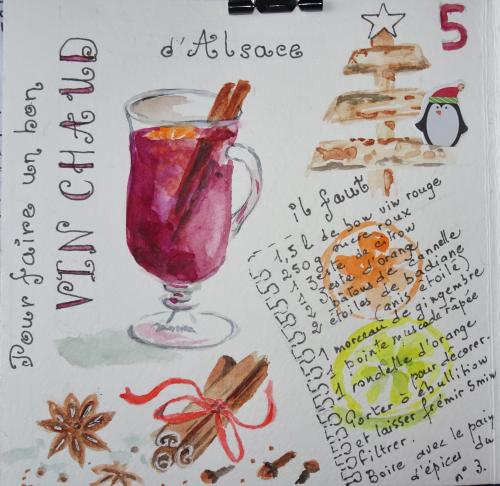 Pour faire un bon
VIN CHAUD
d'Alsace
5
il faut
1,5 l de bon vin rouge
250g sucre roux
zeste de citron
zeste d'orange
bâtons de cannelle
étoiles de badiane
(anis étoilé)
1 morceau de gingembre
1 pointe muscade râpée
1 rondelle d'orange
pour décorer.
Porter à ébullition
et laisser frémir 5min
filtrer.
Boire avec le pain
d'épices du
n° 3.